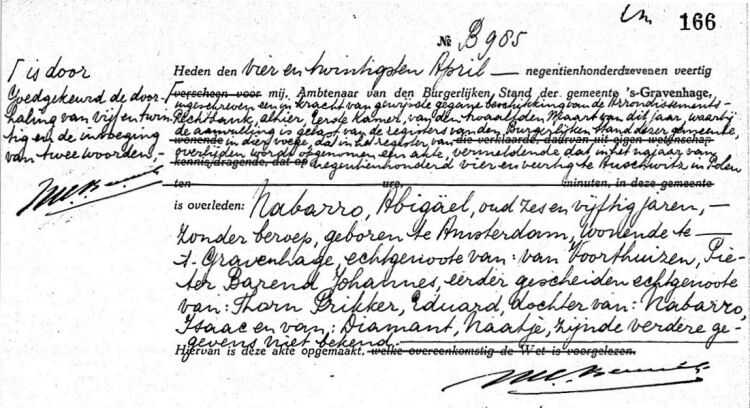 166
№ B 985
Γ is door
Goedgekeurd de door-
haling van vijf en twin
tig en de inbvoeging
van twee woorden.-
Heden den vier en twintigsten April — negentienhonderdzevenen veertig
Γverscheen voor mij, Ambtenaar van den Burgerlijken Stand der gemeente 's-Gravenhage,
ingeschreven een in kracht van gewijsde gegane beschikking van de Arrondissements-
Rechtbank, alhier, eerste Kamer, van den twaalfden Maart van dit jaar, waarbij
de aanvulling is gelast van de registers van den Burgerlijken Stand dezer gemeente,
wonende in dier voege, dat in het register van die verklaarde, daarvan uit eigen wetenschap
overlijden wordt opgenomen een akte, vermeldende dat in het najaar van
kennis dragende, dat op negentienhonderd vier en veertig te Auschwitz in Polen
ten ure, minuten, in deze gemeente
is overleden: Nabarro, Abigäel, oud zes en vijftig jaren, -
zonder beroep, geboren te Amsterdam, wonende te -
's-Gravenhage, echtgenoote van: van Voorthuizen, Pie-
ter Barend Johannes, eerder gescheiden echtgenoote
van: Thorn Prikker, Eduard, dochter van: Nabarro,
Isaac en van: Diamant, Naatje, zijnde verdere ge-
gevens niet bekend.
Hiervan is deze akte opgemaakt, welke overeenkomstig de Wet is voorgelezen.